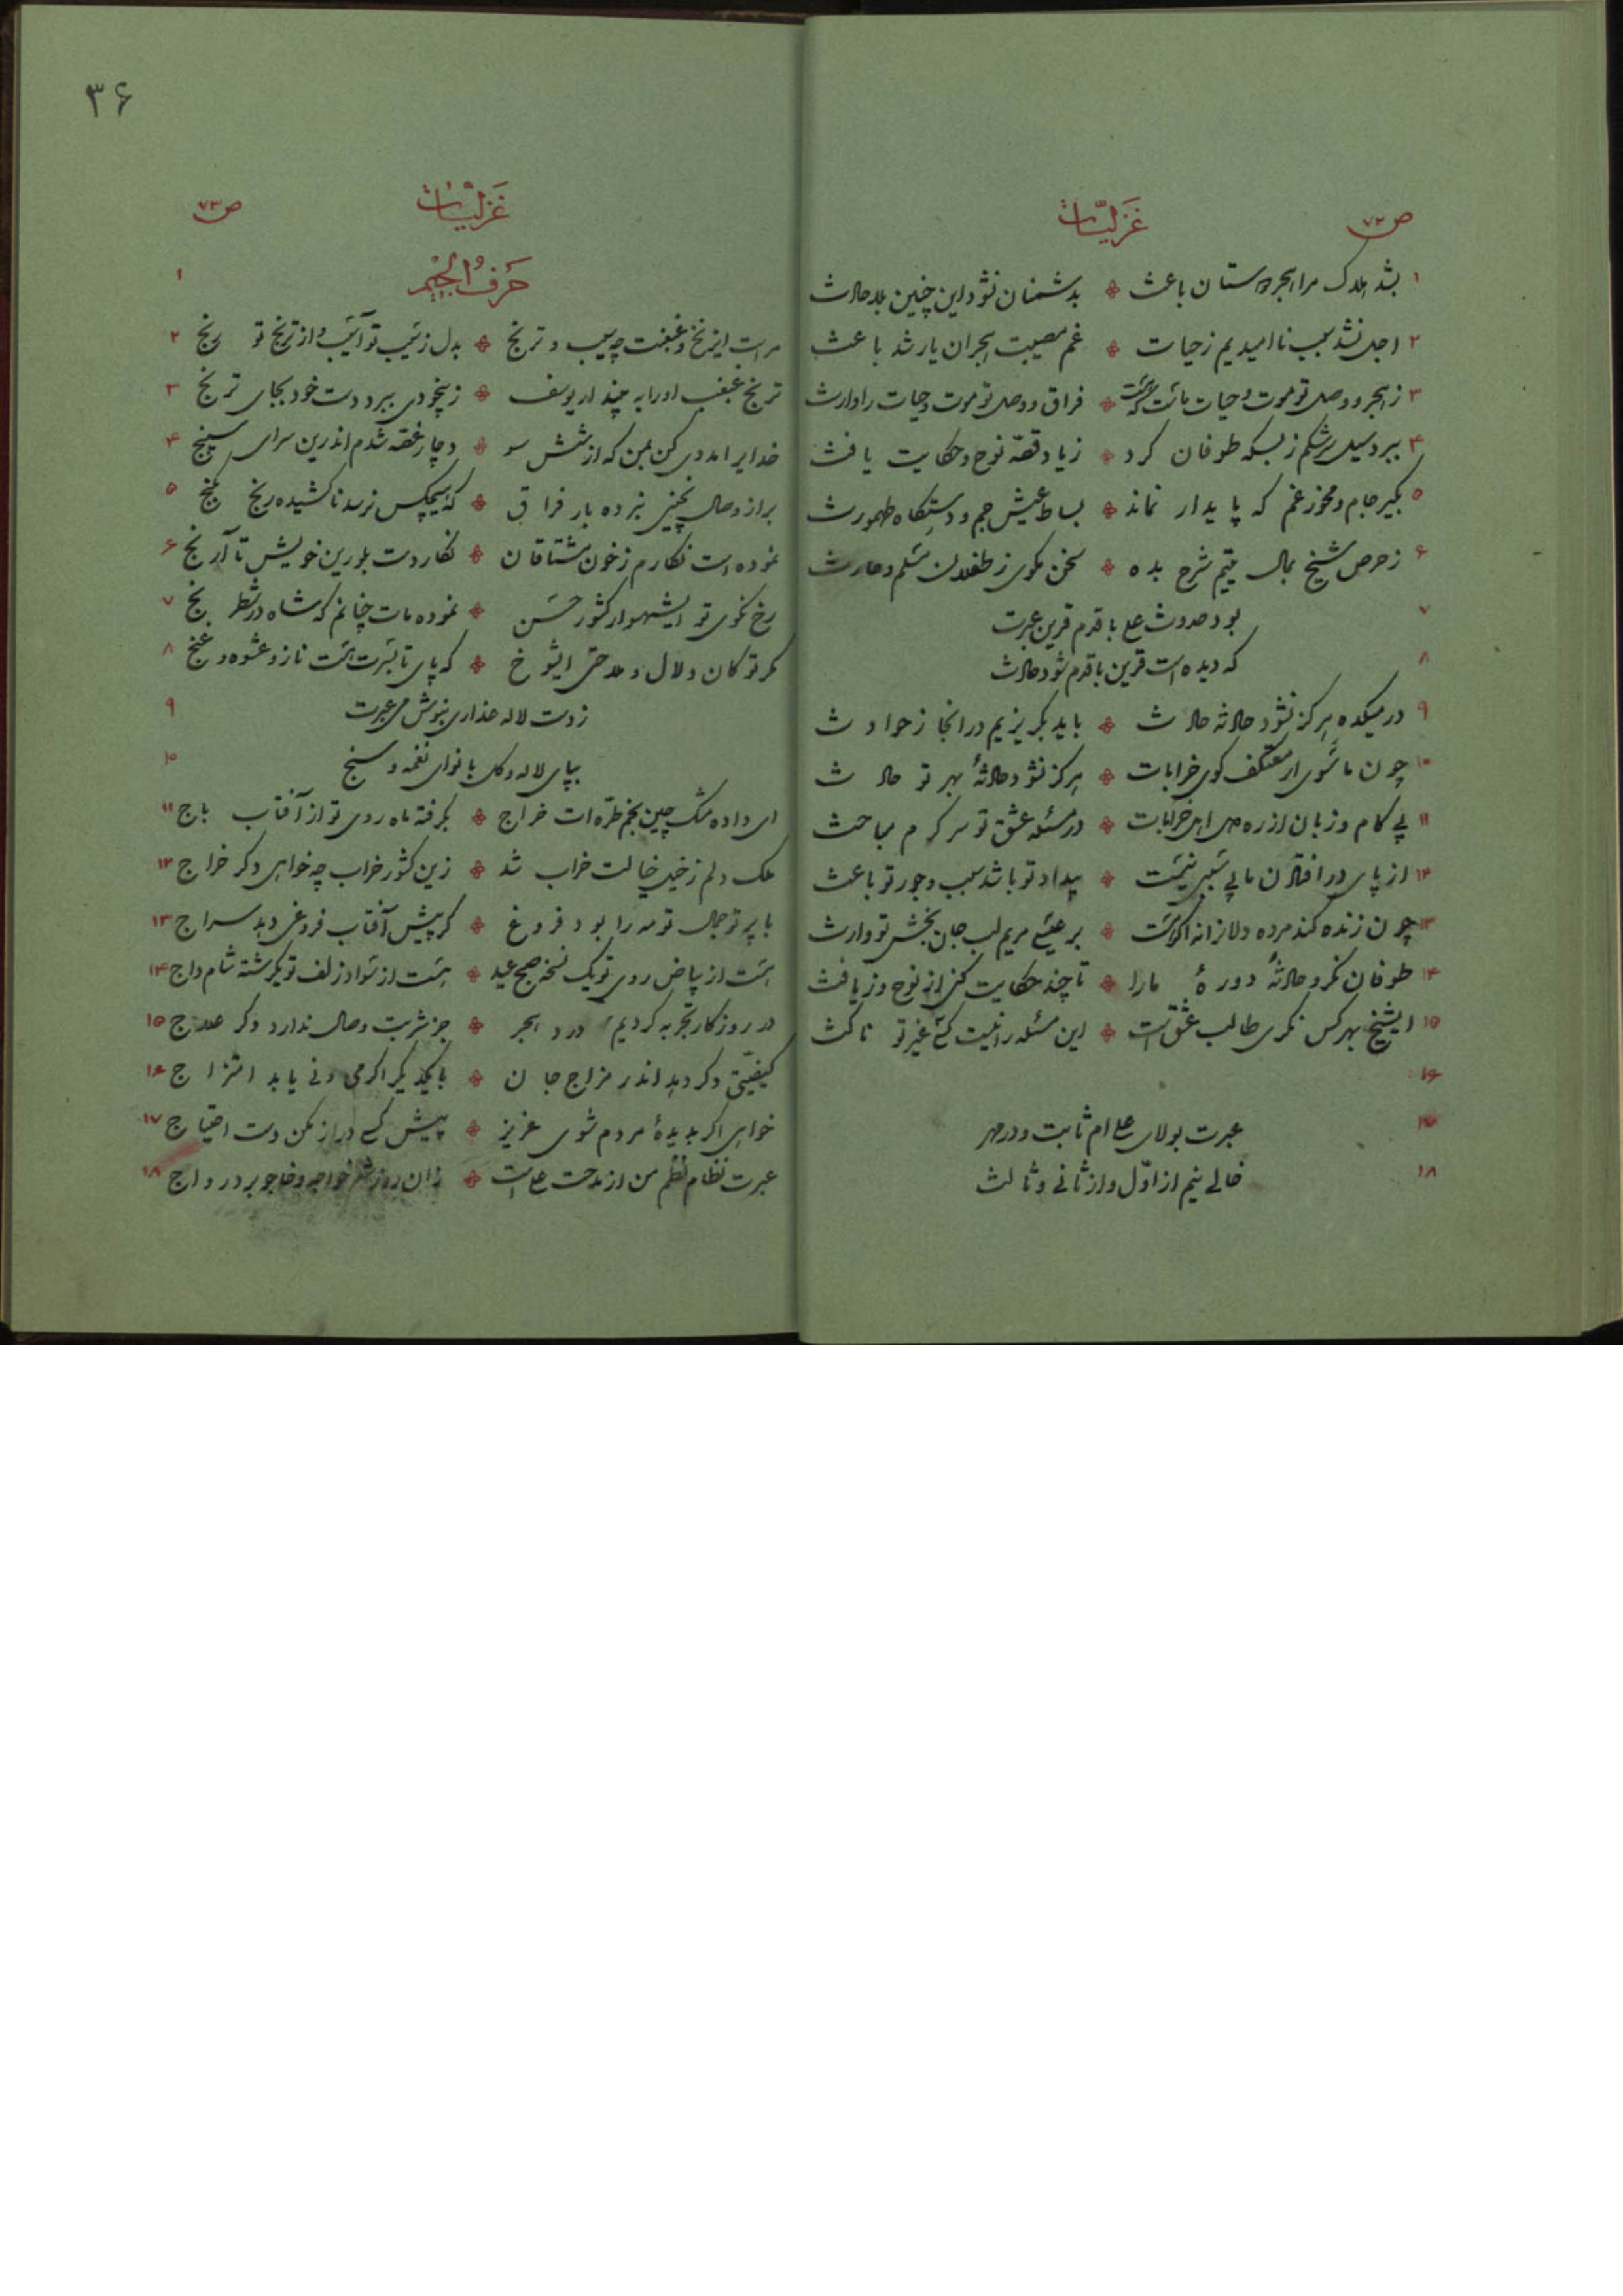 ۳۶
ص۷۲ غَزَلیّات
۱ بشد هلاک مرا هجر دوستان باعث بدشمنان نشود این چنین بلا حادث
۲ اجل نشد سبب ناامیدیم ز حیات غم مصیبت هجران یار شد باعث
۳ ز هجر و وصل تو موت و حیات ماست که هست فراق و وصل تو موت و حیات را وارث
۴ ببرد سیل سرشکم ز بسکه طوفان کرد ز یاد قصّه نوح و حکایت یافث
۵ بگیر جام و مخور غم که پایدار نماند بساط عیش جم و دستگاه طهمورث
۶ ز حرص شیخ بمال یتیم شرح بده سخن مگوی ز طفلان مسلم و حارث
۷ بود حدوث علی با قدم قرین عبرت
۸ که دیده است قرین با قدم شود حادث
۹ در میکده هرگز نشود حادثه حادث باید بگریزیم در انجا ز حوادث
۱۰ چون ما شوی ار معتکف کوی خرابات هرگز نشود حادثهٔ بهر تو حادث
۱۱ بی کام و زبان از ره دل اهل خرابات در مسئله عشق تو سرگرم مباحث
۱۲ از پای در افتادن ما بی سببی نیست بیداد تو باشد سبب و جور تو باعث
۱۳ چون زنده کند مرده دلانرا نه اگر هست بر عیسی مریم لب جان بخش تو وارث
۱۴ طوفان نگر و حادثهٔ دورهٔ ما را تا چند حکایت کنی از نوح و ز یافث
۱۵ ایشیخ بهر کس نگری طالب عشق است این مسئله را نیست کسی غیر تو ناکث
۱۶
۱۷ عبرت بولای علی‌ام ثابت و در دهر
۱۸ خالی نیم از اوّل و از ثانی و ثالث
ص۷۳ غَزَلیّات
۱ حَرفُ الجیْم
۲ مراست این زنخ و غبغبت چه سیب و ترنج بدل ز سیب تو آسیب و از ترنج تو رنج
۳ ترنج غبغب او را به بیند ار یوسف ز بیخودی ببرد دست خود بجای ترنج
۴ خدایرا مددی کن بمن که از شش سو دچار غصّه شدم اندرین سرای سپنج
۵ بر از وصال نچینی نبرده بار فراق که هیچکس نرسد ناکشیده رنج بگنج
۶ نموده است نگارم ز خون مشتاقان نگار دست بلورین خویش تا آرنج
۷ رخ نکوی تو ایشهسوار کشور حسن نموده مات چنانم که شاه در شطرنج
۸ مگر تو کان دلال و ملاحتی ایشوخ که پای تا بسرت هست ناز و عشوه و غنج
۹ ز دست لاله عذاری بنوش می عبرت
۱۰ بپای لاله و گل با نوای نغمه و سنج
۱۱ ای داده مشک چین بخم طرّه‌ات خراج بگرفته ماه روی تو از آفتاب باج
۱۲ ملک دلم ز خیل خیالت خراب شد زین کشور خراب چه خواهی دگر خراج
۱۳ با پرتو جمال تو مه را بود فروغ گر پیش آفتاب فروغی دهد سراج
۱۴ هست از بیاض روی تو یک نسخه صبح عید هست از سواد زلف تو یکرشته شام داج
۱۵ در روزگار تجربه کردیم درد هجر جز شربت وصال ندارد دگر علاج
۱۶ کیفیّتی دگر دهد اندر مزاج جان با یکدیگر اگر می و نی یابد امتزاج
۱۷ خواهی اگر بدیدهٔ مردم شوی عزیز پیش کسی دراز مکن دست احتیاج
۱۸ عبرت نظام نظم من از مدحت علی است زان روز شعر خواجه و خاجو برد رواج